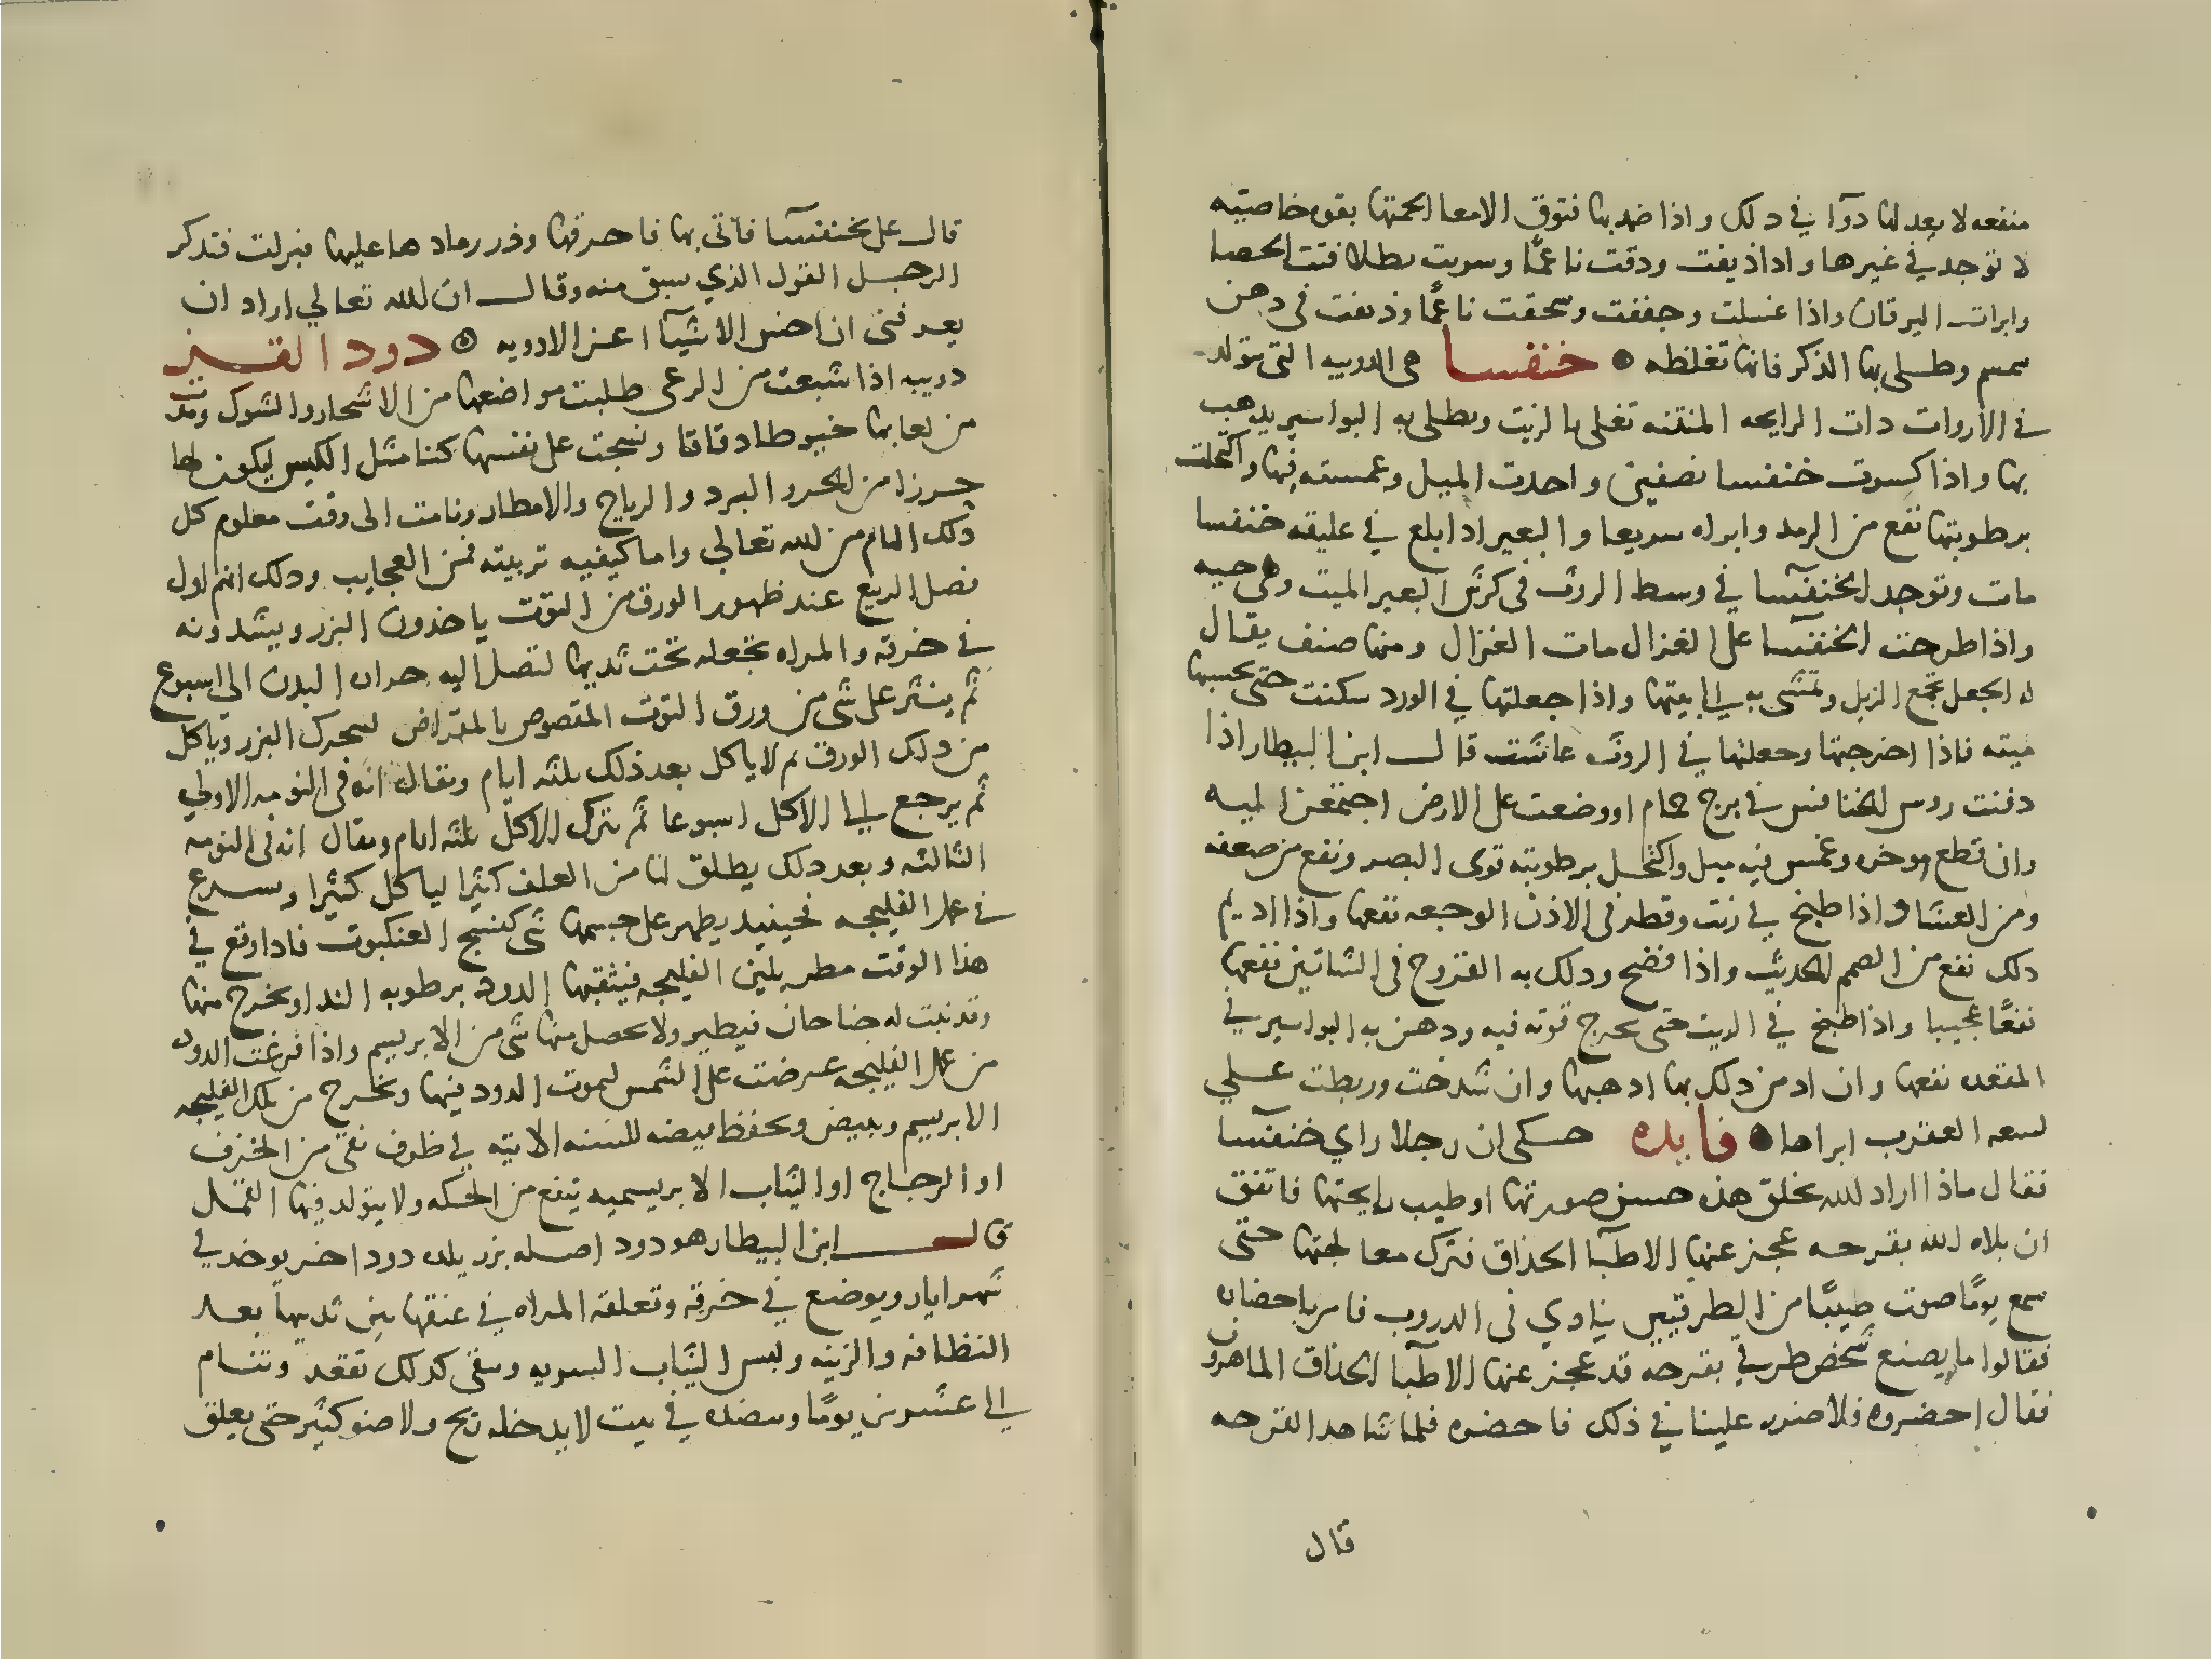 منفعه لا يعدلها دوآ في دلك واذا ضمد بها فتوق الامعا الحمتها بقوه خاصيته
لا توجد في غيرها واذا ذيفت ودقت ناعمًا وسويت بطلا فتت الحصا
وابرات اليرقان واذا غسلت وجففت وسحقت ناعمًا وذيفت في دهن
سمسم وطلي بها الذكر فانها تغلظه ۞ خنفسا هي الدويبه التي تتولد
في الاروات دات الرايحه المنتنه تغلي بالزيت ويطلي به البواسير يدهب
بها واذا كسرت خنفسا نصفين واخدت الميل وغمسته فيها واكتحلت
برطوبتها نفع من الرمد وابراه سريعا والبعير اذا بلع في عليقه خنفسا
مات وتوجد الخنفسآ في وسط الروث في كرش البعير الميت وهي حيه
واذا طرحت الخنفسآ على الغزال مات الغزال ومنها صنف يقال
له الجعل يجمع الزبل وتمشي به الي بيتها واذا جعلتها في الورد سكنت حتى تحسبها
ميته فاذا اخرجتها وجعلتها في الروث عاشت قال ابن البيطار اذا
دفنت روس الخنافس في برج حمام او وضعت على الارض اجتمعن اليه
وان قطع موخره وغمس فيه ميل واكتحل برطوبته قوى البصر ونفع من ضعفه
ومن العشا واذا طبخ في زيت وقطر في الاذن الوجعه نفعها واذا اديم
دلك نفع من الصمم الحديث واذا فضخ ودلك به القروح في الساقين نفعها
نفعًا عجيبا واذا طبخ في الزيت حتى تخرج قوته فيه ودهن به البواسير في
المقعده نفعها وان ادمن دلك بها ادهبها وان شدخت وربطت علي
لسعه العقرب ابراها ۞ فايده حكي ان رجلا راي خنفسآ
فقال ماذا اراد الله بخلق هذه حسن صورتها او طيب رايحتها فاتفق
ان بلاه الله بقرحه عجز عنها الاطبآ الحذاق فترك معالجتها حتى
سمع يومًا صوت طبيبًا من الطرقيين ينادي في الدروب فامر باحضاره
فقالوا ما يصنع شخص طرقي بقرحه قد عجز عنها الاطبآ الحذاق الماهرون
فقال احضروه فلا ضرر علينا في ذلك فاحضره فلما شاهد القرحه
قال
قال علي بخنفسآ فاتى بها فاحرقها وذر رمادها عليها فبرات فتدكر
الرجل القول الذي سبق منه وقال ان الله تعالي اراد ان
يعرفني ان اخس الاشيآ اعز الادويه ۞ دود القز
دويبه اذا شبعت من الرعي طلبت مواضعها من الاشجار والشوك ومدت
من لعابها خيوطا دقاقا ونسجت على نفسها كنا مثل الكيس ليكون لها
حرزا من الحر والبرد والرياح والامطار ونامت الى وقت معلوم كل
ذلك الهام من الله تعالي واما كيفيه تربيته فمن العجايب ودلك انهم اول
فصل الربيع عند ظهور الورق من التوت ياخذون البزر ويشدونه
في خرقه والمراه تجعله تحت ثديها لتصل اليه حراره البدن الي اسبوع
ثم ينثر على شي من ورق التوت المقصوص بالمقراض ليتحرك البزر وياكل
من دلك الورق ثم لا ياكل بعد ذلك ثلثه ايام ويقال انه في النومه الاولي
ثم يرجع الي الاكل اسبوعا ثم يترك الاكل ثلثه ايام ويقال انه في النومه
الثالثه وبعد دلك يطلق لها من العلف كثيرا لياكل كثيرا ويسرع
في عمل الفليجه فحينيد يظهر على جسمها شي كنسج العنكبوت فاذا وقع في
هذا الوقت مطر يلين الفليجه فيثقبها الدود برطوبه الندا ويخرج منها
وقد نبت له جناحان فيطير ولا يحصل منها شي من الابريسم واذا فرغت الدود
من عمل الفليجه عرضت على الشمس ليموت الدود فيها ويخرج من تلك الفليجه
الابريسم وبيض ويحفظ بيضه للسنه الاتيه في ظرف نقي من الخزف
او الزجاج او الثياب الابريسميه ينفع من الحكه ولا يتولد فيها القمل
قال ابن البيطار هو دود اصله بزر يلد دود اخر يوخد في
شهر ايار ويوضع في خرقه وتعلقه المراه في عنقها بين ثديها بعد
النظافه والزينه ولبس الثياب السويه وتبقى كدلك تقعد وتنام
الي عشرين يومًا ويضعه في بيت لا يدخله ريح ولا ضو كثير حتى يعلق